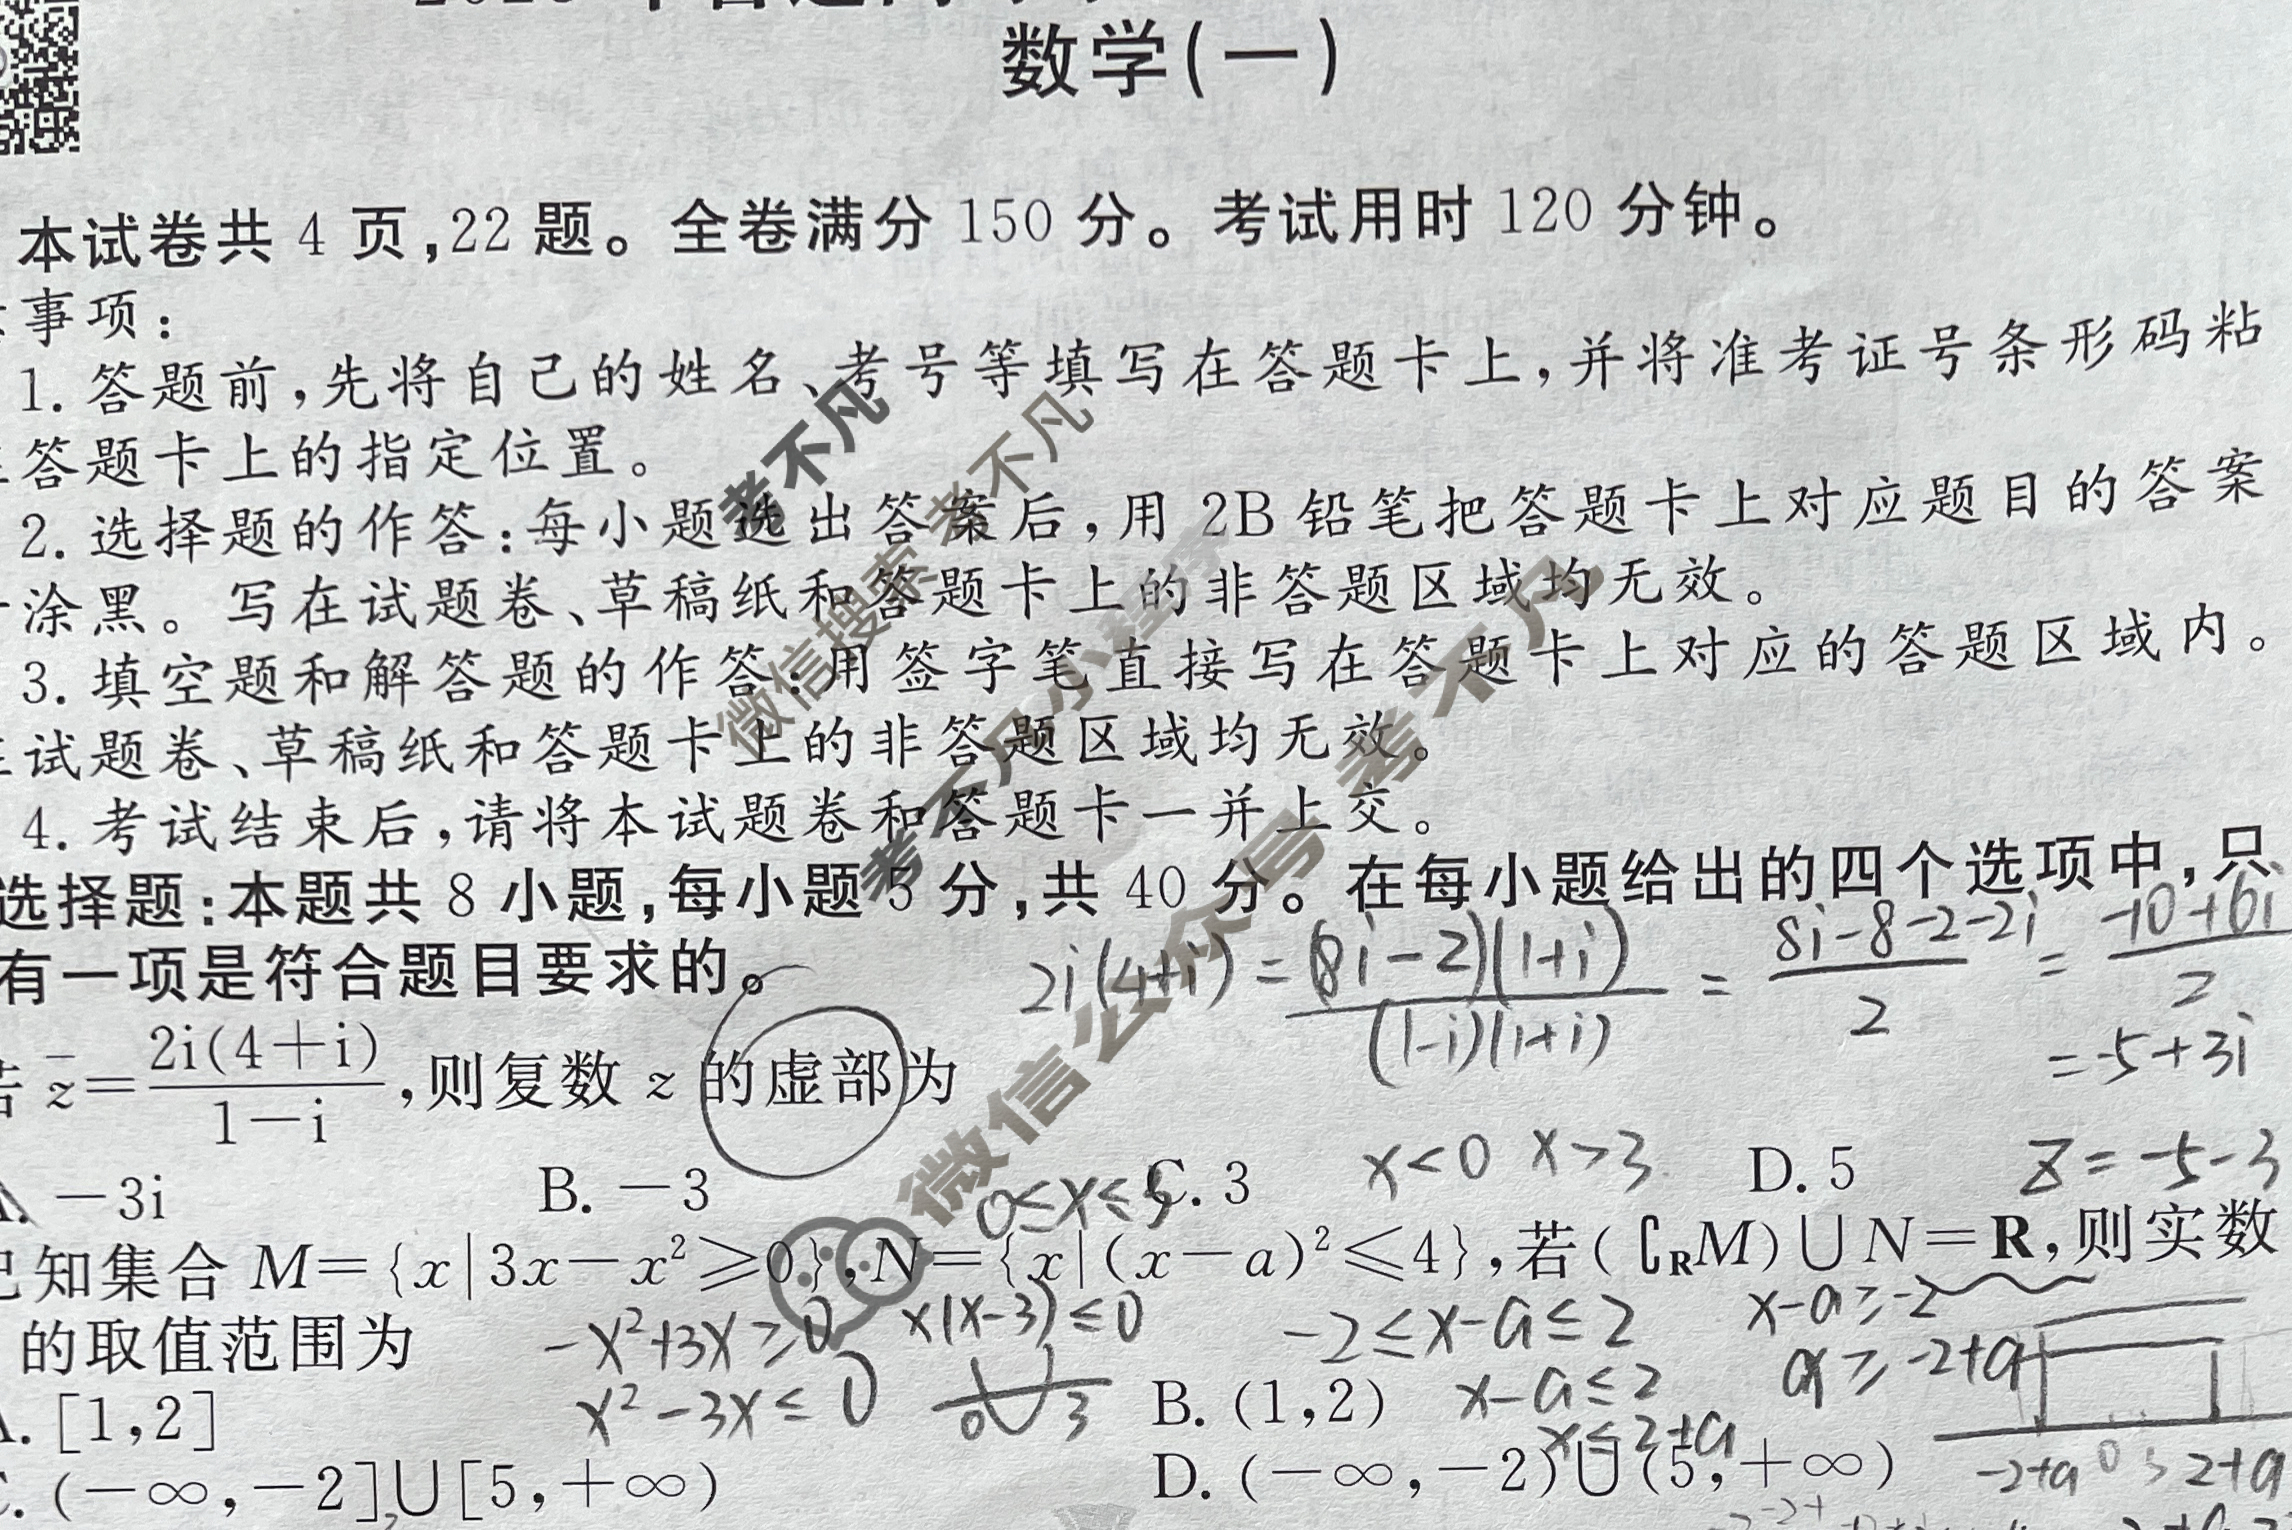 数学(一)
本试卷共 4 页,22 题。全卷满分 150 分。考试用时 120 分钟。
事项:
1. 答题前,先将自己的姓名、考号等填写在答题卡上,并将准考证号条形码粘
答题卡上的指定位置。
2. 选择题的作答:每小题选出答案后,用 2B 铅笔把答题卡上对应题目的答案
涂黑。写在试题卷、草稿纸和答题卡上的非答题区域均无效。
3. 填空题和解答题的作答:用签字笔直接写在答题卡上对应的答题区域内。
试题卷、草稿纸和答题卡上的非答题区域均无效。
4. 考试结束后,请将本试题卷和答题卡一并上交。
选择题:本题共 8 小题,每小题 5 分,共 40 分。在每小题给出的四个选项中,只
有一项是符合题目要求的。
2i(4+i) = (8i-2)(1+i)/(1-i)(1+i) = 8i-8-2-2i/2 = -10+6i/2
= -5+3i
z̄=2i(4+i)/1-i,则复数 z 的虚部为
-3i
B. -3
C. 3
D. 5
0≤x≤3
x<0 x>3
z=-5-3
知集合 M={x|3x-x²≥0},N={x|(x-a)²≤4},若(∁RM)∪N=R,则实数
的取值范围为
-x²+3x≥0
x(x-3)≤0
-2≤x-a≤2
x-a≥-2
x≥-2+a
x²-3x≤0
0 3
x-a≤2
x≤2+a
-2+a 0 3 2+a
[1,2]
B. (1,2)
(-∞,-2]∪[5,+∞)
D. (-∞,-2)∪(5,+∞)
考不凡
微信搜索 考不凡
考不凡小程序
微信公众号 考不凡